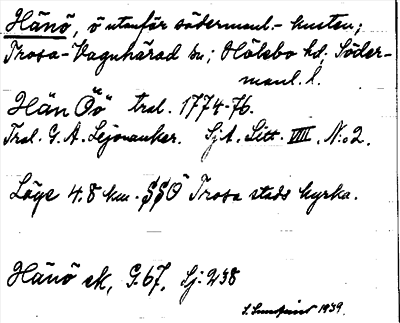 Hänö, ö utanför södermanl.- kusten;
Trosa-Vagnhärad sn; Hölebo hd; Söder-
manl. l.
Hän Öö tral. 1774-76.
Tral. G. A. Lejonanker. SjA. Litt. VIII. N:o 2.
Läge 4.8 km. SSO Trosa stads kyrka.
Hänö ek, G. 67, Sj: 238
1939.